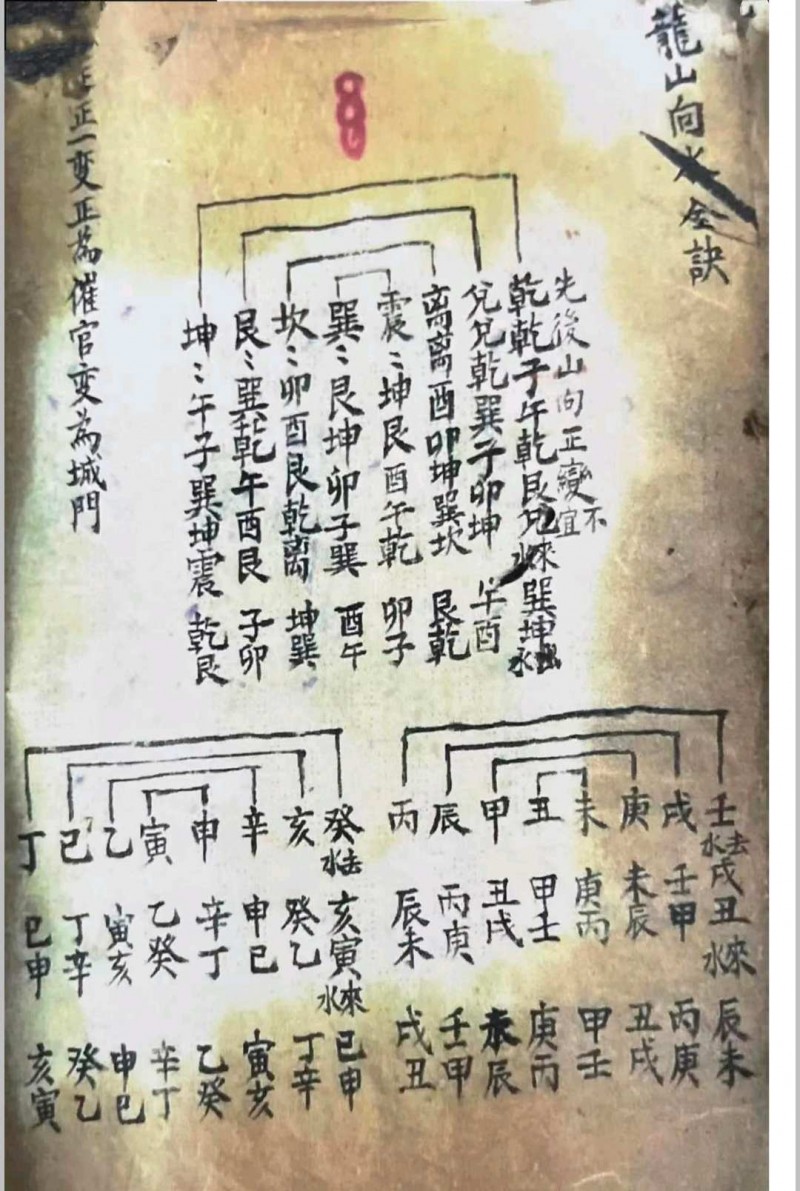 龍山向水全訣
先後山向正變宜不
乾乾子午乾艮兌水來巽坤水出
兌兌乾巽子卯坤 午酉
离离酉卯坤巽坎 艮乾
震〻坤艮酉午乾 卯子
巽〻艮坤卯子巽 酉午
坎〻卯酉艮乾离 坤巽
艮〻巽乾午酉艮 子卯
坤〻午子巽坤震 乾艮
正一变正為催官变為城門
壬水去戌丑水來辰未
戌 壬甲 丙庚
庚 未辰 丑戌
未 庚丙 甲壬
丑 甲壬 庚丙
甲 丑戌 未辰
辰 丙庚 壬甲
丙 辰未 戌丑
癸水去亥寅水來巳申
亥 癸乙 丁辛
辛 申巳 寅亥
申 辛丁 乙癸
寅 乙癸 辛丁
乙 寅亥 申巳
巳 丁辛 癸乙
丁 巳申 亥寅